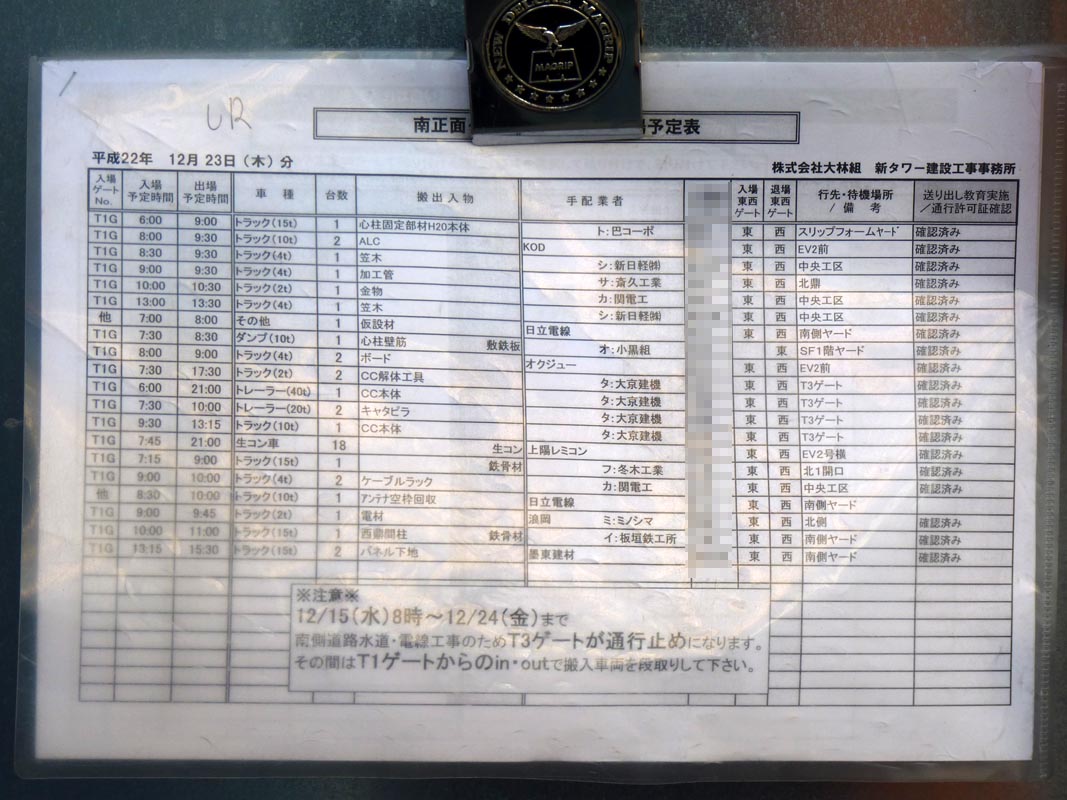 NEW DELUXE MAGRIP
MAGRIP
UR
南正面 予定表
平成22年 12月 23日（木）分
株式会社大林組 新タワー建設工事事務所
入場ゲートNo. 入場予定時間 出場予定時間 車種 台数 搬出入物 手配業者 入場東西ゲート 退場東西ゲート 行先・待機場所／備考 送り出し教育実施／通行許可証確認
T1G 6:00 9:00 トラック(15t) 1 心柱固定部材H20本体 ト:巴コーポ 東 西 スリップフォームヤード 確認済み
T1G 8:00 9:30 トラック(10t) 2 ALC KOD 東 西 EV2前 確認済み
T1G 8:30 9:30 トラック(4t) 1 笠木 シ:新日軽㈱ 東 西 中央工区 確認済み
T1G 9:00 9:30 トラック(4t) 1 加工管 サ:斎久工業 東 西 北鼎 確認済み
T1G 10:00 10:30 トラック(2t) 1 金物 カ:関電工 東 西 中央工区 確認済み
T1G 13:00 13:30 トラック(4t) 1 笠木 シ:新日軽㈱ 東 西 中央工区 確認済み
他 7:00 8:00 その他 1 仮設材 日立電線 東 西 南側ヤード 確認済み
T1G 7:30 8:30 ダンプ(10t) 1 心柱壁筋 敷鉄板 オ:小黒組 東 SF1階ヤード 確認済み
T1G 8:00 9:00 トラック(4t) 2 ボード オクジュー 東 西 EV2前 確認済み
T1G 7:30 17:30 トラック(2t) 2 CC解体工具 タ:大京建機 東 西 T3ゲート 確認済み
T1G 6:00 21:00 トレーラー(40t) 1 CC本体 タ:大京建機 東 西 T3ゲート 確認済み
T1G 7:30 10:00 トレーラー(20t) 2 キャタピラ タ:大京建機 東 西 T3ゲート 確認済み
T1G 9:30 13:15 トラック(10t) 1 CC本体 タ:大京建機 東 西 T3ゲート 確認済み
T1G 7:45 21:00 生コン車 18 生コン 上陽レミコン 東 西 EV2号横 確認済み
T1G 7:15 9:00 トラック(15t) 1 鉄骨材 フ:冬木工業 東 西 北1開口 確認済み
T1G 9:00 10:00 トラック(4t) 2 ケーブルラック カ:関電工 東 西 中央工区 確認済み
他 8:30 10:00 トラック(10t) 1 アンテナ空枠回収 日立電線 東 西 南側ヤード
T1G 9:00 9:45 トラック(2t) 1 電材 浪岡 ミ:ミノシマ 東 西 北側 確認済み
T1G 10:00 11:00 トラック(15t) 1 西鼎間柱 鉄骨材 イ:板垣鉄工所 東 西 南側ヤード 確認済み
T1G 13:15 15:30 トラック(15t) 2 パネル下地 墨東建材 東 西 南側ヤード 確認済み
※注意※
12/15(水)8時～12/24(金)まで
南側道路水道・電線工事のためT3ゲートが通行止めになります。
その間はT1ゲートからのin・outで搬入車両を段取りして下さい。